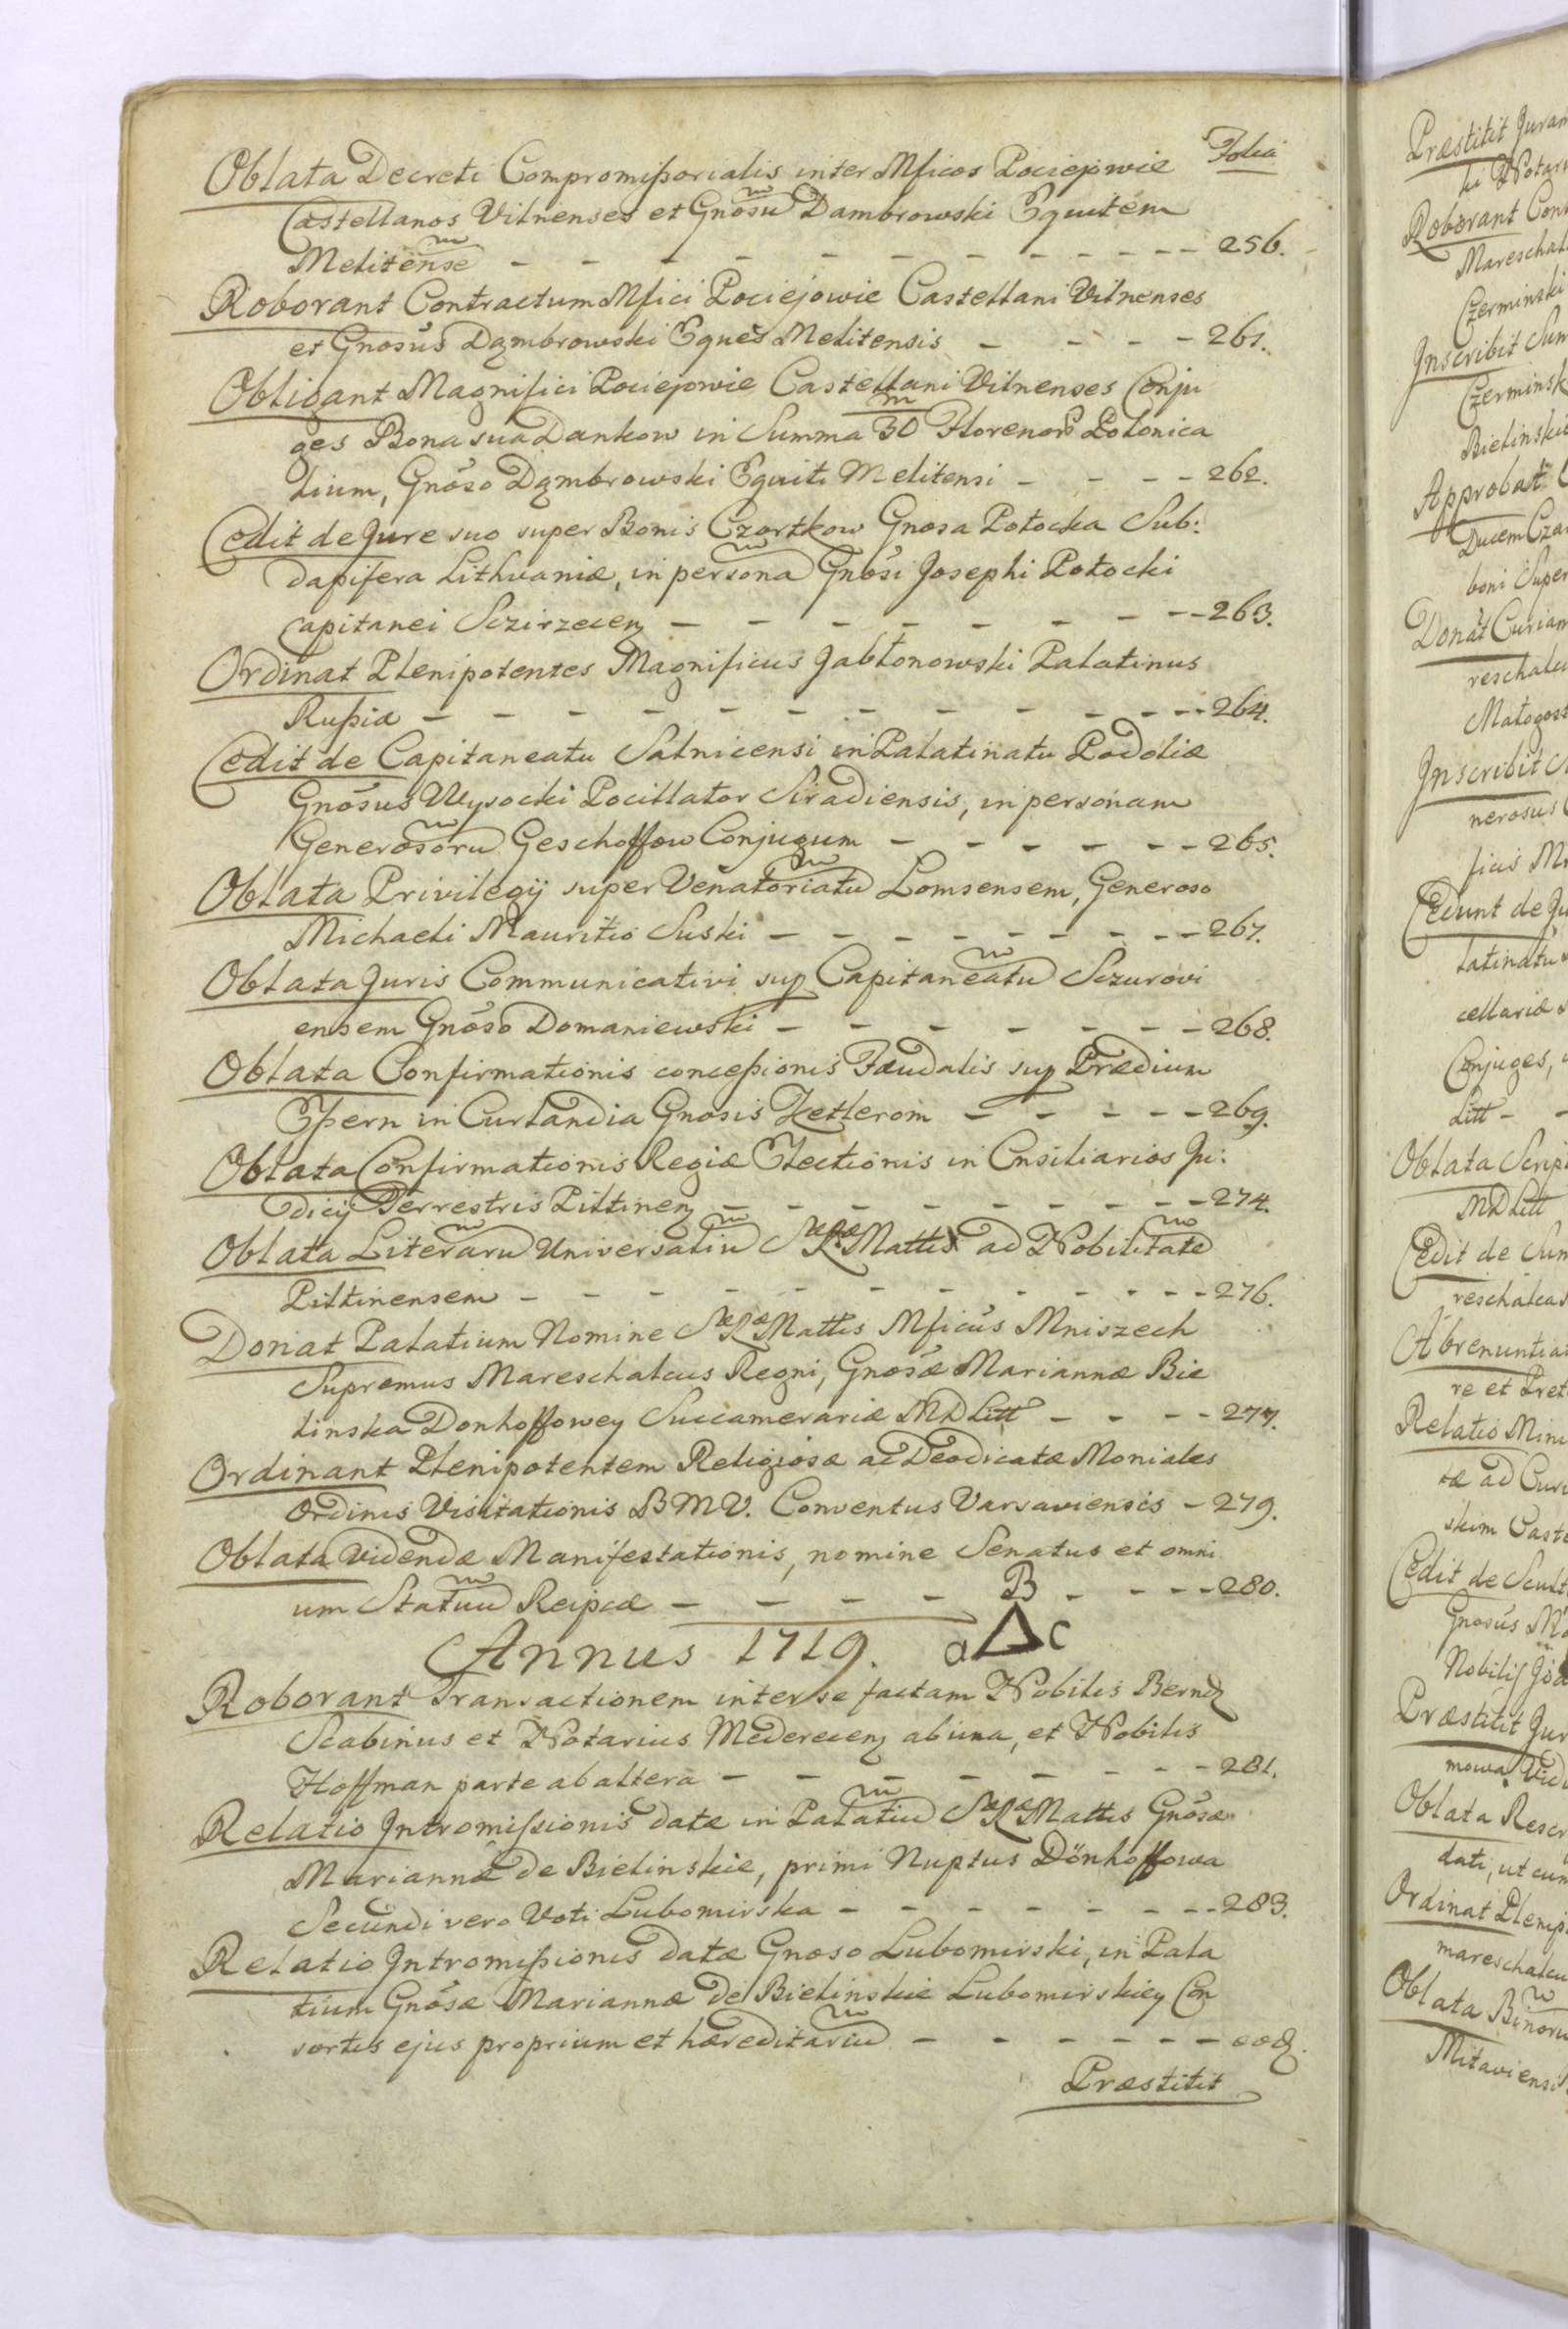 Folia
Oblata Decreti Compromißorialis inter Mficos Pociejowie
Castellanos Vilnenses et Gnosũ Dambrowski Equitem
Melitense - - - - - - - - - - - 256.
Roborant Contractum Mfici Pociejowie Castellani Vilnenses
et Gnosus Dąmbrowski Eques Melitensis - - - - 261.
Obligant Magnifici Pociejowie Castellani Vilnenses Conju
ges Bona sua Dankow in Summa 30 m Florenorũ Polonica
lium, Gnoso Dąmbrowski Equiti Melitensi - - - - 262.
Cedit de Jure suo super Bonis Czortkow Gnosa Potocka Sub:
dapifera Lithvaniæ, in persona Gnosi Josephi Potocki
Capitanei Sczirzecen - - - - - - - - - 263.
Ordinat Plenipotentes Magnificus Jabłonowski Palatinus
Rußiæ - - - - - - - - - - - - - 264.
Cedit de Capitaneatu Salnicensi in Palatinatu Podoliæ
Gnosus Wysocki Pocillator Siradiensis, in personam
Generosorũ Geschoffow Conjugum - - - - - - 265.
Oblata Privilegij super Venatoriatũ Lomsensem, Generoso
Michaeli Mauritio Suski - - - - - - - - - 267.
Oblata Juris Communicativi sup Capitaneatũ Sczurovi
ensem Gnoso Domaniewski - - - - - - - - 268.
Oblata Confirmationis conceßionis Fæudalis sup Prædium
Eßern in Curlandia Gnosis Ketlerom - - - - - 269.
Oblata Confirmationis Regiæ Electionis in Cnsiliarios Ju:
dicij Terrestris Piltinen - - - - - - - - - 274.
Oblata Literarũ Universaliũ Sæ Ræ Mattis ad Nobilitatẽ
Piltinensem - - - - - - - - - - - - 276.
Donat Palatium Nomine Sæ Ræ Mattis Mficus Mniszech
Supremus Mareschalcus Regni, Gnosæ Mariannæ Bie
linska Donhoffowey Succamerariæ MD Litt - - - - 277.
Ordinant Plenipotentem Religiosæ ac Deodicatæ Moniales
Ordinis Visitationis B M V. Conventus Varsaviensis - 279.
Oblata Videndæ Manifestationis, nomine Senatus et omni
um Statuũ Reipcæ - - - - B - - - - 280.
Annus 1719. a Δ c
Roborant Transactionem inter se factam Nobilis Bernd
Scabinus et Notarius Mederecen ab una, et Nobilis
Hoffman parte ab altera - - - - - - - - 281.
Relatio Intromissionis datæ in Palatiũ Sæ Ræ Mattis Gnosæ
Mariannæ de Bielinskie, primi Nuptus Dönhoffowa
Secundi vero Voti Lubomirska - - - - - - - 283.
Relatio Intromißionis datæ Gnoso Lubomirski, in Pala
tium Gnosæ Mariannæ de Bielinskie Lubomirskiey Con
sortis ejus proprium et hæreditariũ - - - - - - eod.
Præstitit
Præstitit Juram
Roborant Con
Mareschal
Czerminski
Inscribit Sum
Czerminsk
Bielinski
Approbat
Ducem Cza
boni Super
Donat Curiam
reschalc
Małogosz
Inscribit
nerosus
ficus
Cedunt de Ju
latinatu
cellariæ
Conjuges,
Litt -
Oblata Scrip
MD Litt
Cedit de Sum
reschalcas
Abrenuntiat
re et Pret
Relatio Mini
tæ ad Curi
skim Caste
Cedit de Scult
Gnosus
Nobilis
Præstitit Jur
mowa Vid
Oblata Rescr
dati, ut cum
Ordinat Plenip
mareschalcu
Oblata Binoru
Mitaviensi